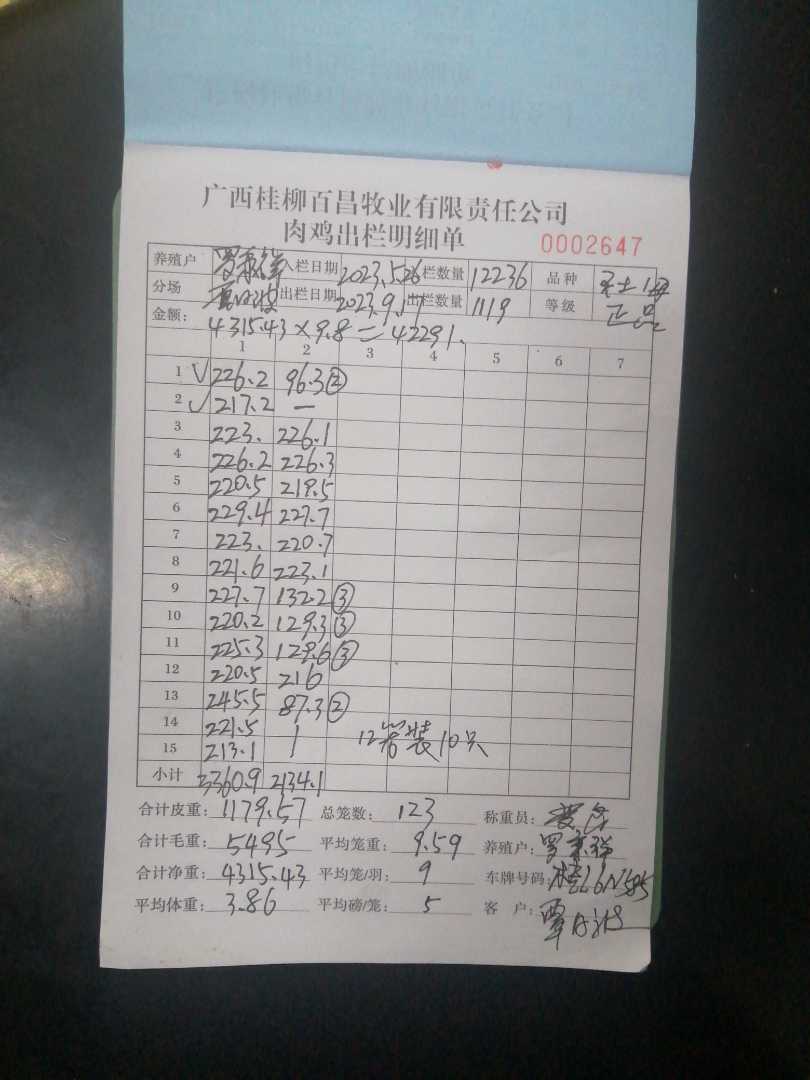 广西桂柳百昌牧业有限责任公司
肉鸡出栏明细单 0002647
养殖户 入栏日期 2023.5.26 栏数量 12236 品种
分场 出栏日期 2023.9.17 出栏数量 1119 等级 正品
金额: 4315.43×9.8=42291.
1 2 3 4 5 6 7
1 √ 226.2 96.3 ②
2 √ 217.2 —
3 223. 226.1
4 226.2 226.3
5 220.5 219.5
6 229.4 227.7
7 223. 220.7
8 221.6 223.1
9 227.7 132.2 ③
10 220.2 129.3 ③
11 225.3 129.6 ③
12 220.5 216
13 245.5 87.3 ②
14 221.5 1
15 213.1 12笼装10只
小计 3360.9 2134.1
合计皮重: 1179.57 总笼数: 123 称重员:
合计毛重: 5495 平均笼重: 9.59 养殖户:
合计净重: 4315.43 平均笼/羽: 9 车牌号码:
平均体重: 3.86 平均磅/笼: 5 客 户: